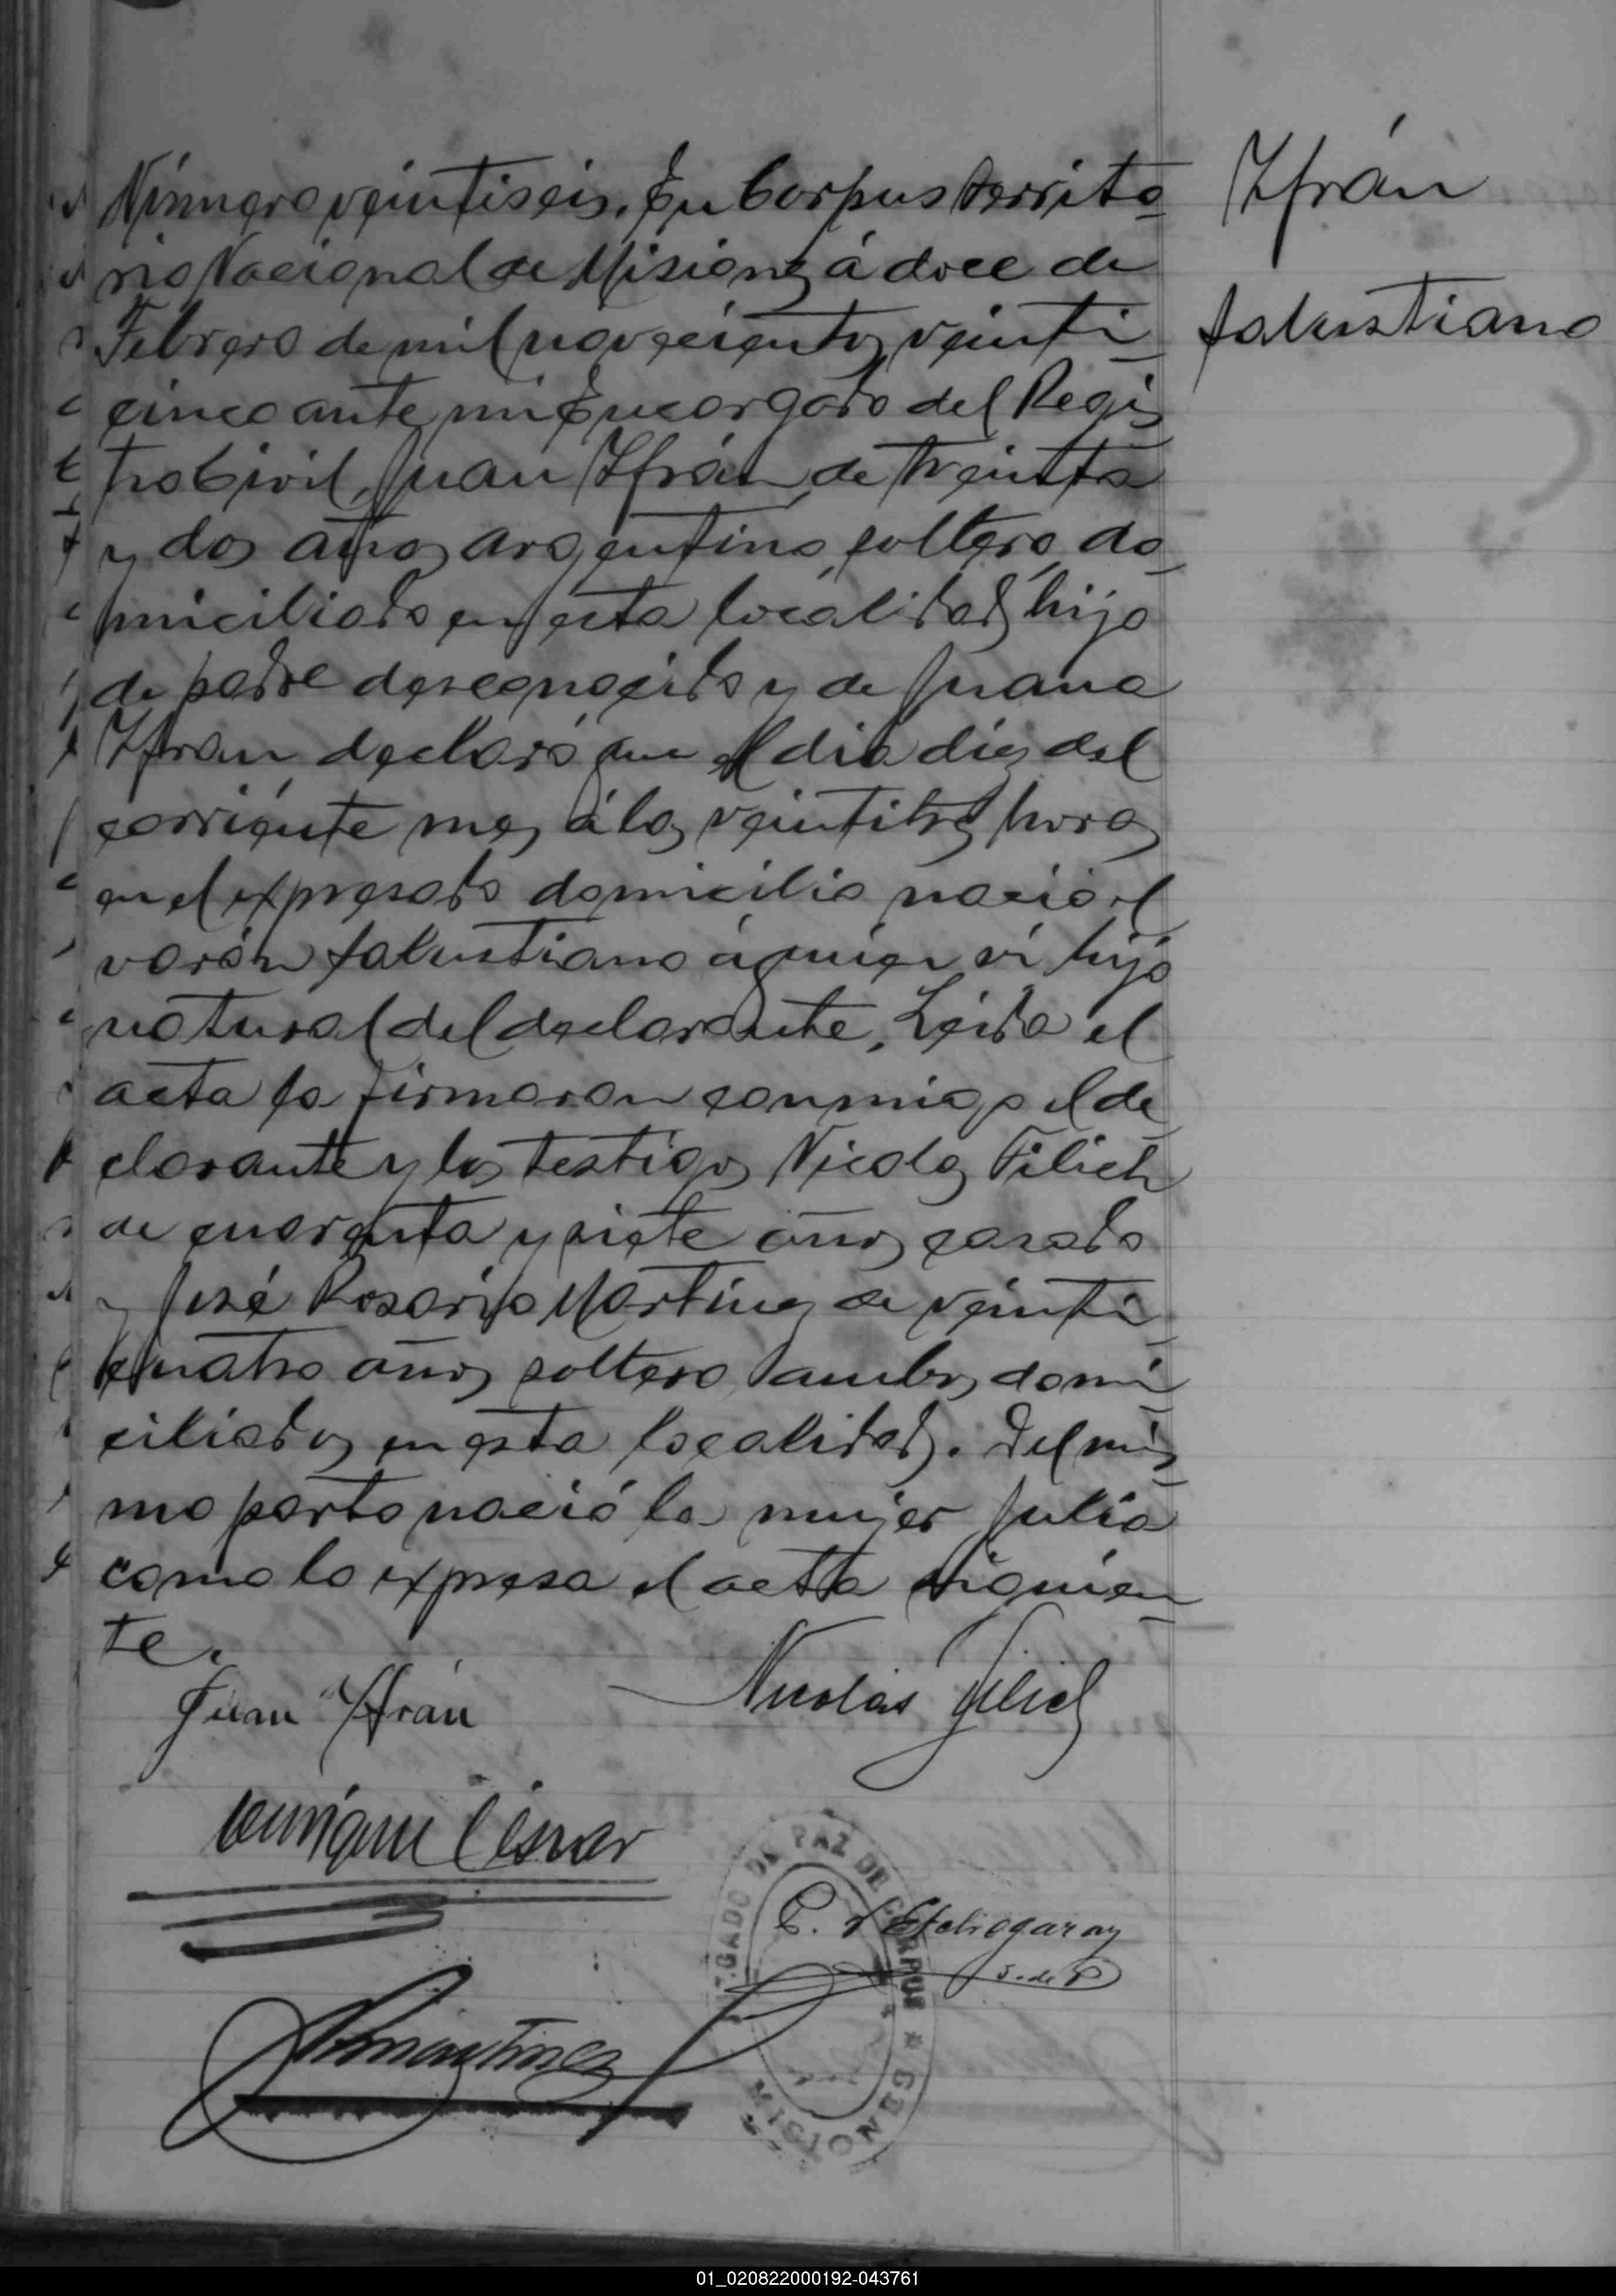 Número veintiseis. En Corpus territo-
rio Nacional de Misiones á doce de
Febrero de mil novecientos veinti-
cinco ante mi Encargado del Regis-
tro Civil, Juan Ifrán, de treinta
y dos años, argentino, soltero, do-
miciliado en esta localidad, hijo
de padre desconocido y de Juana
Ifran declaró que el dia diez del
corriente mes á las veintitres horas
en el expresado domicilio nació el
varón Salustiano á quien ví hijo
natural del declarante. Leida el
acta la firmaron conmigo el de-
clarante y los testigos Nicolas Filich
de cuarenta y siete años, casado
y José Rosario Martinez de veinti-
cuatro años, soltero, ambos domi-
ciliados en esta localidad. Del mis-
mo parto nació la mujer Julia
como lo expresa el acta siguien-
te.
Ifrán
Salustiano
Juan Ifrán
Nicolás Filich
Enrique
Martinez
Etchegaray
J. de P
JUZGADO DE PAZ DE CORPUS
MISIONES
01_020822000192-043761